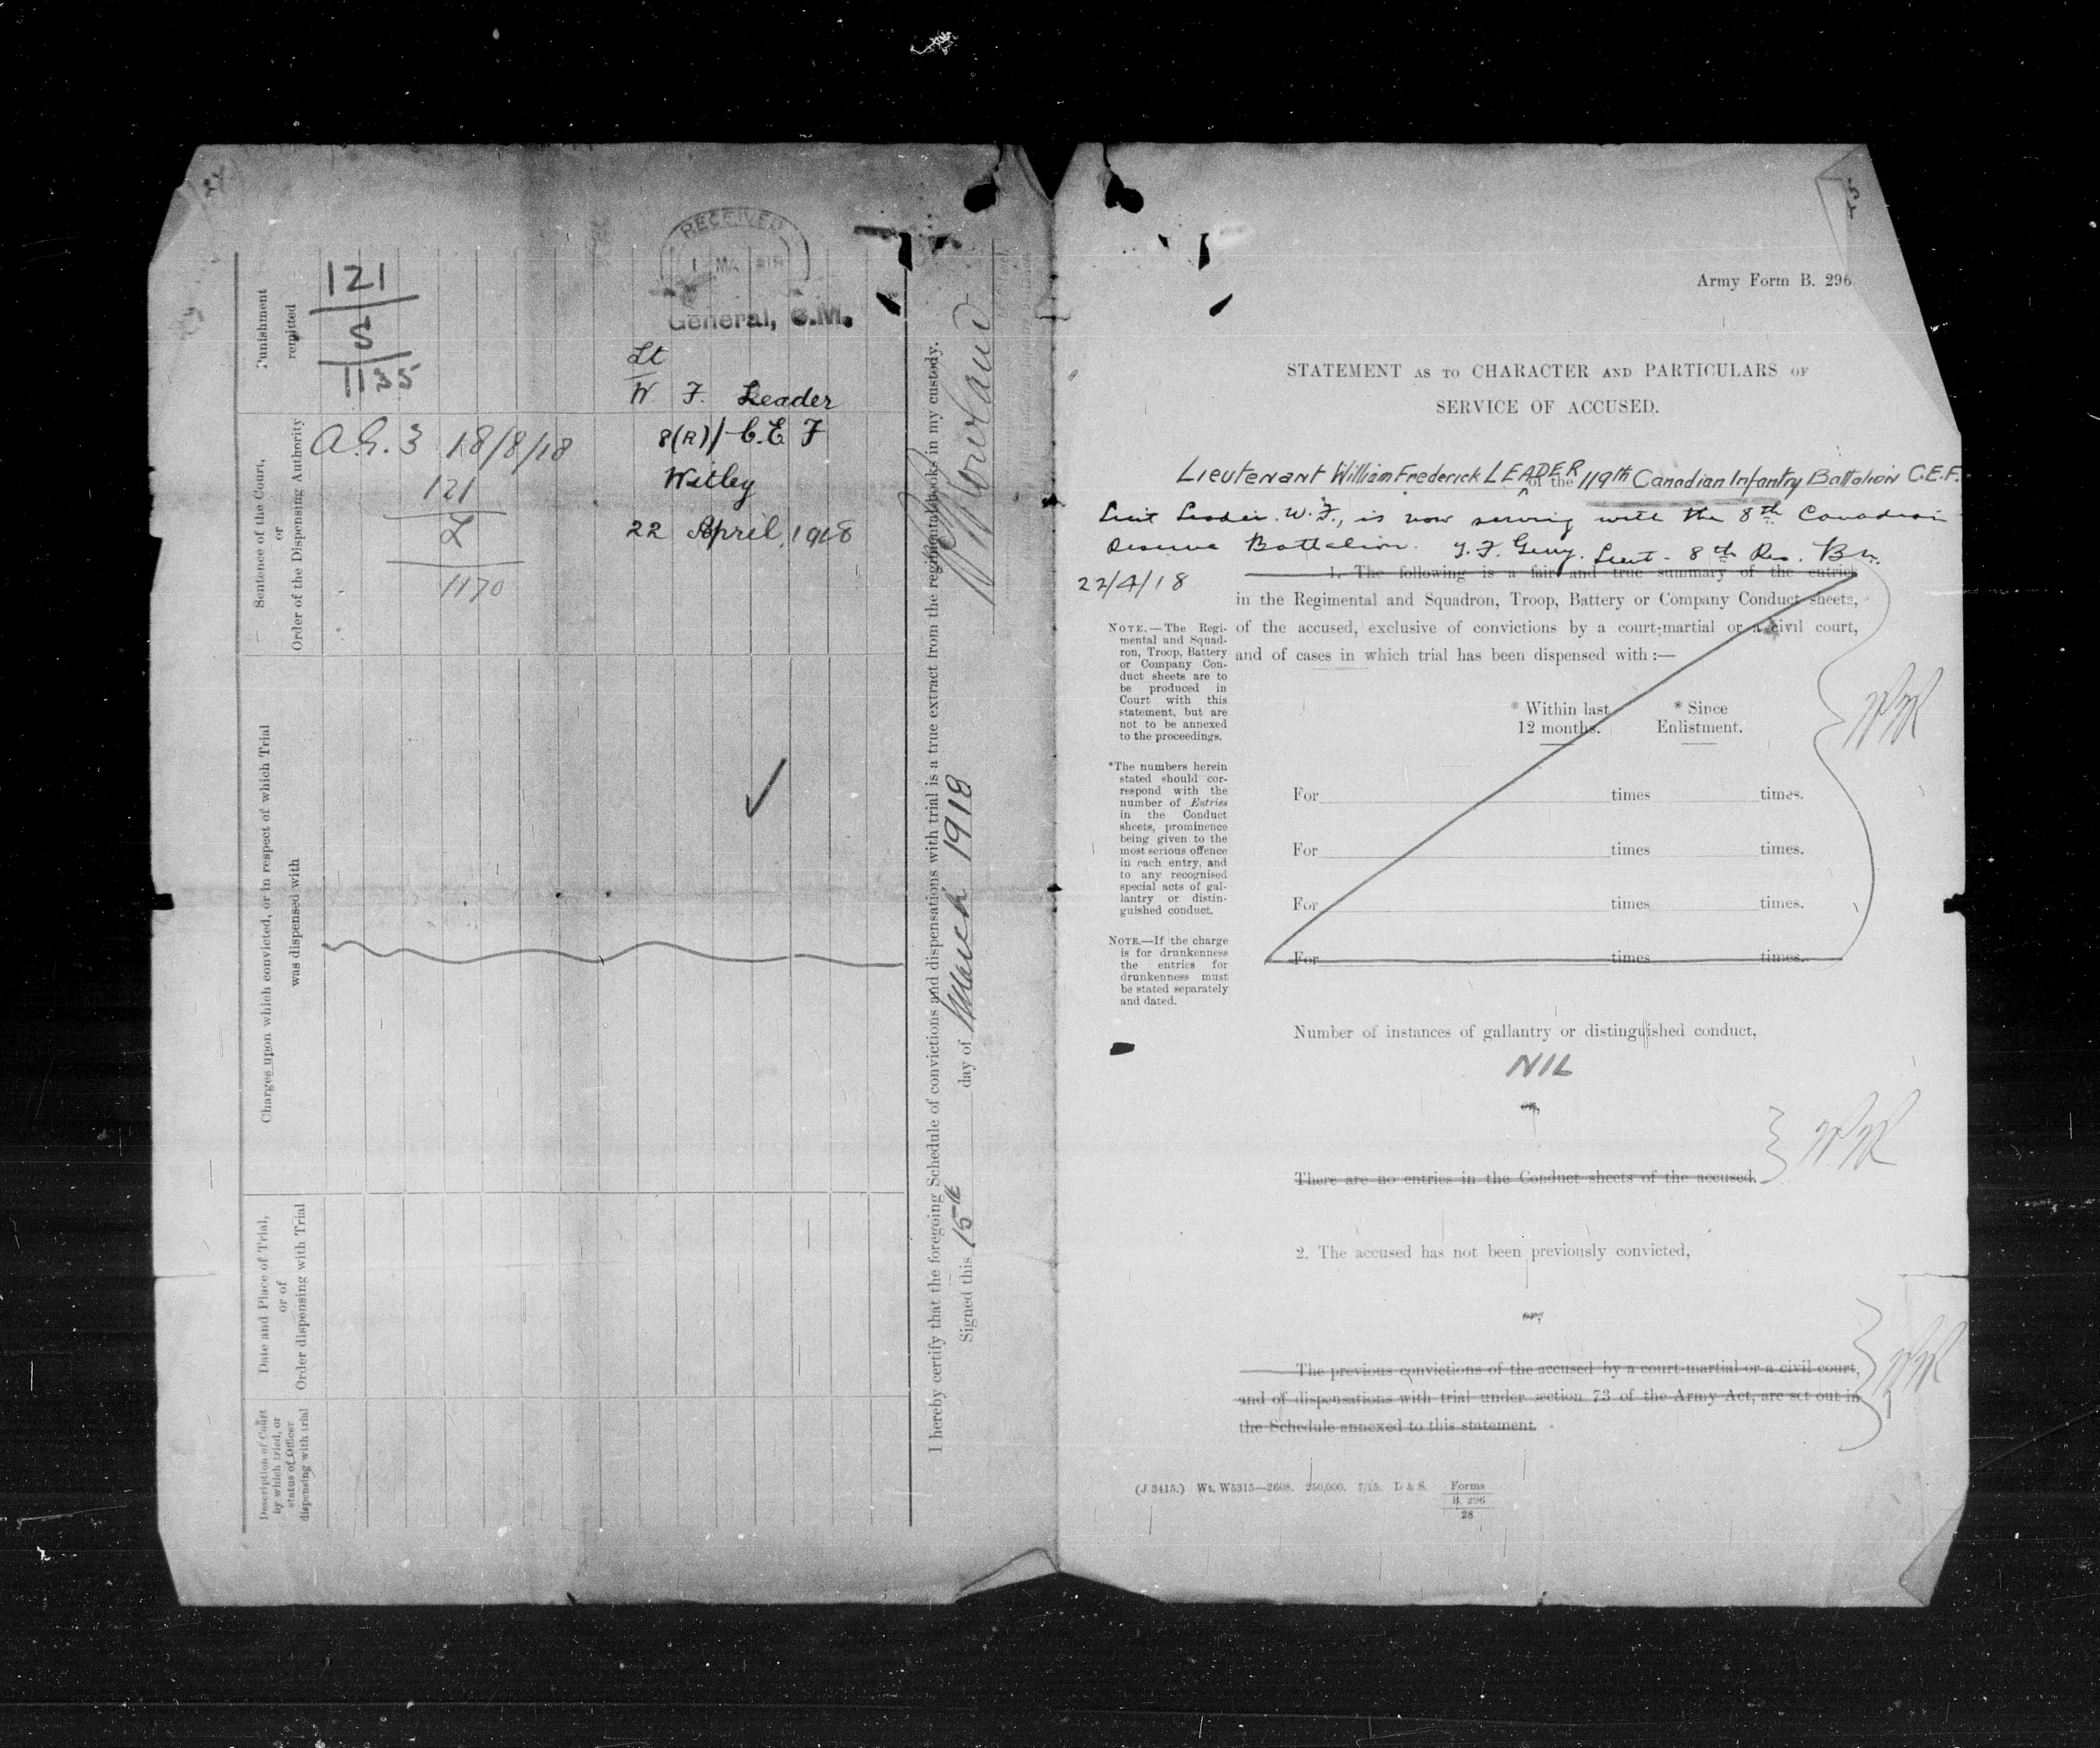 121
S
1135
A.G. 3 18/8/18
121
L
1170
RECEIVED
General, C.M.
Lt
W F. Leader
8(R)/ C.E F
Witley
22 April, 1918
Punishment
remitted
Sentence of the Court,
or
Order of the Dispensing Authority
Charges upon which convicted, or in respect of which Trial
was dispensed with
Date and Place of Trial,
or of
Order dispensing with Trial
Description of Court
by which tried, or
status of Officer
dispensing with trial
I hereby certify that the foregoing Schedule of convictions and dispensations with trial is a true extract from the regimental books in my custody.
Signed this 15th day of March 1918
Army Form B. 296
STATEMENT AS TO CHARACTER AND PARTICULARS OF
SERVICE OF ACCUSED.
Lieutenant William Frederick LEADER of the 119th Canadian Infantry Battalion C.E.F.
Lieut Leader. W. F., is now serving with the 8th Canadian
Reserve Battalion. Lieut - 8th Res. Bn.
22/4/18
1. The following is a fair and true summary of the entries
in the Regimental and Squadron, Troop, Battery or Company Conduct sheets,
of the accused, exclusive of convictions by a court-martial or a civil court,
and of cases in which trial has been dispensed with :—
NOTE.—The Regi-
mental and Squad-
ron, Troop, Battery
or Company Con-
duct sheets are to
be produced in
Court with this
statement, but are
not to be annexed
to the proceedings.
*The numbers herein
stated should cor-
respond with the
number of Entries
in the Conduct
sheets, prominence
being given to the
most serious offence
in each entry, and
to any recognised
special acts of gal-
lantry or distin-
guished conduct.
NOTE.—If the charge
is for drunkenness
the entries for
drunkenness must
be stated separately
and dated.
* Within last * Since
12 months. Enlistment.
For times times.
For times times.
For times times.
For times times.
Number of instances of gallantry or distinguished conduct,
NIL
or,
There are no entries in the Conduct sheets of the accused.
2. The accused has not been previously convicted,
or,
The previous convictions of the accused by a court-martial or a civil court,
and of dispensations with trial under section 73 of the Army Act, are set out in
the Schedule annexed to this statement.
(J 3415.) Wt. W5315—2608. 250,000. 7/15. D & S. Forms
B. 296
28